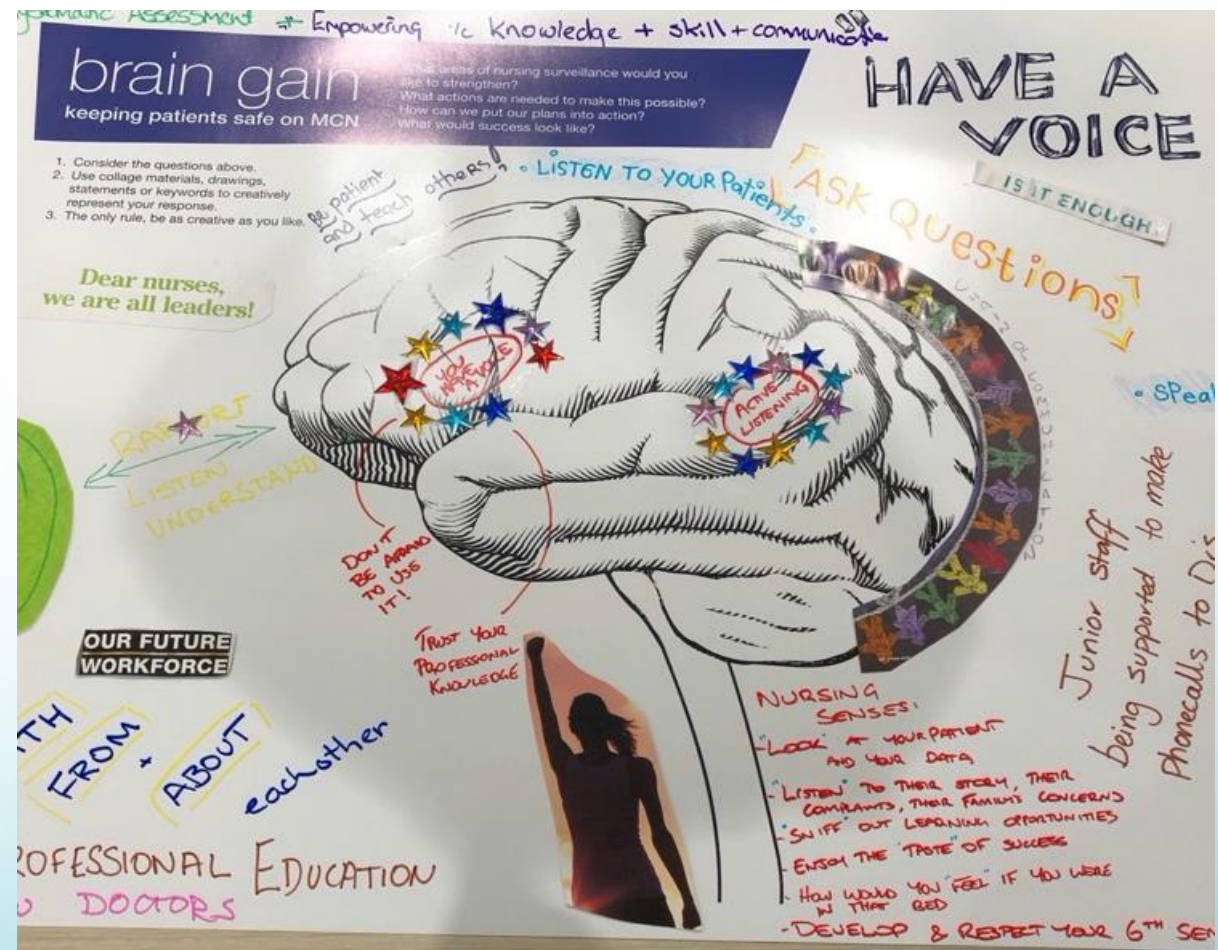 Systematic Assessment Empowering c̄ Knowledge + skill + communicate
brain gain
keeping patients safe on MCN
areas of nursing surveillance would you
like to strengthen?
What actions are needed to make this possible?
How can we put our plans into action?
What would success look like?
HAVE A
VOICE
1. Consider the questions above.
2. Use collage materials, drawings,
statements or keywords to creatively
represent your response.
3. The only rule, be as creative as you like.
Be patient
and teach others!
• LISTEN TO YOUR Patients.
ASK Questions
IS IT ENOUGH
Dear nurses,
we are all leaders!
YOU
HAVE
A VOICE
ACTIVE
LISTENING
RAPPORT
LISTEN
UNDERSTAND
• SPeak
DON'T
BE AFRAID
TO USE
IT!
TRUST YOUR
PROFESSIONAL
KNOWLEDGE
Junior staff
being supported to make
Phonecalls to Drs
OUR FUTURE
WORKFORCE
ITH
FROM +
ABOUT
each other
ROFESSIONAL EDUCATION
DOCTORS
NURSING
SENSES:
- "LOOK" AT YOUR PATIENT
AND YOUR DATA
- "LISTEN" TO THEIR STORY, THEIR
COMPLAINTS, THEIR FAMILY'S CONCERNS
- "SNIFF" OUT LEARNING OPPORTUNITIES
- ENJOY THE "TASTE" OF SUCCESS
- HOW WOULD YOU "FEEL" IF YOU WERE
IN THAT BED
- DEVELOP & RESPECT YOUR 6TH SEN